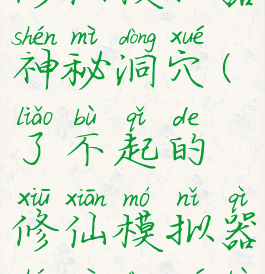 shén mì dòng xué
神秘洞穴(
liǎo bù qǐ de
了不起的
xiū xiān mó nǐ qì
修仙模拟器